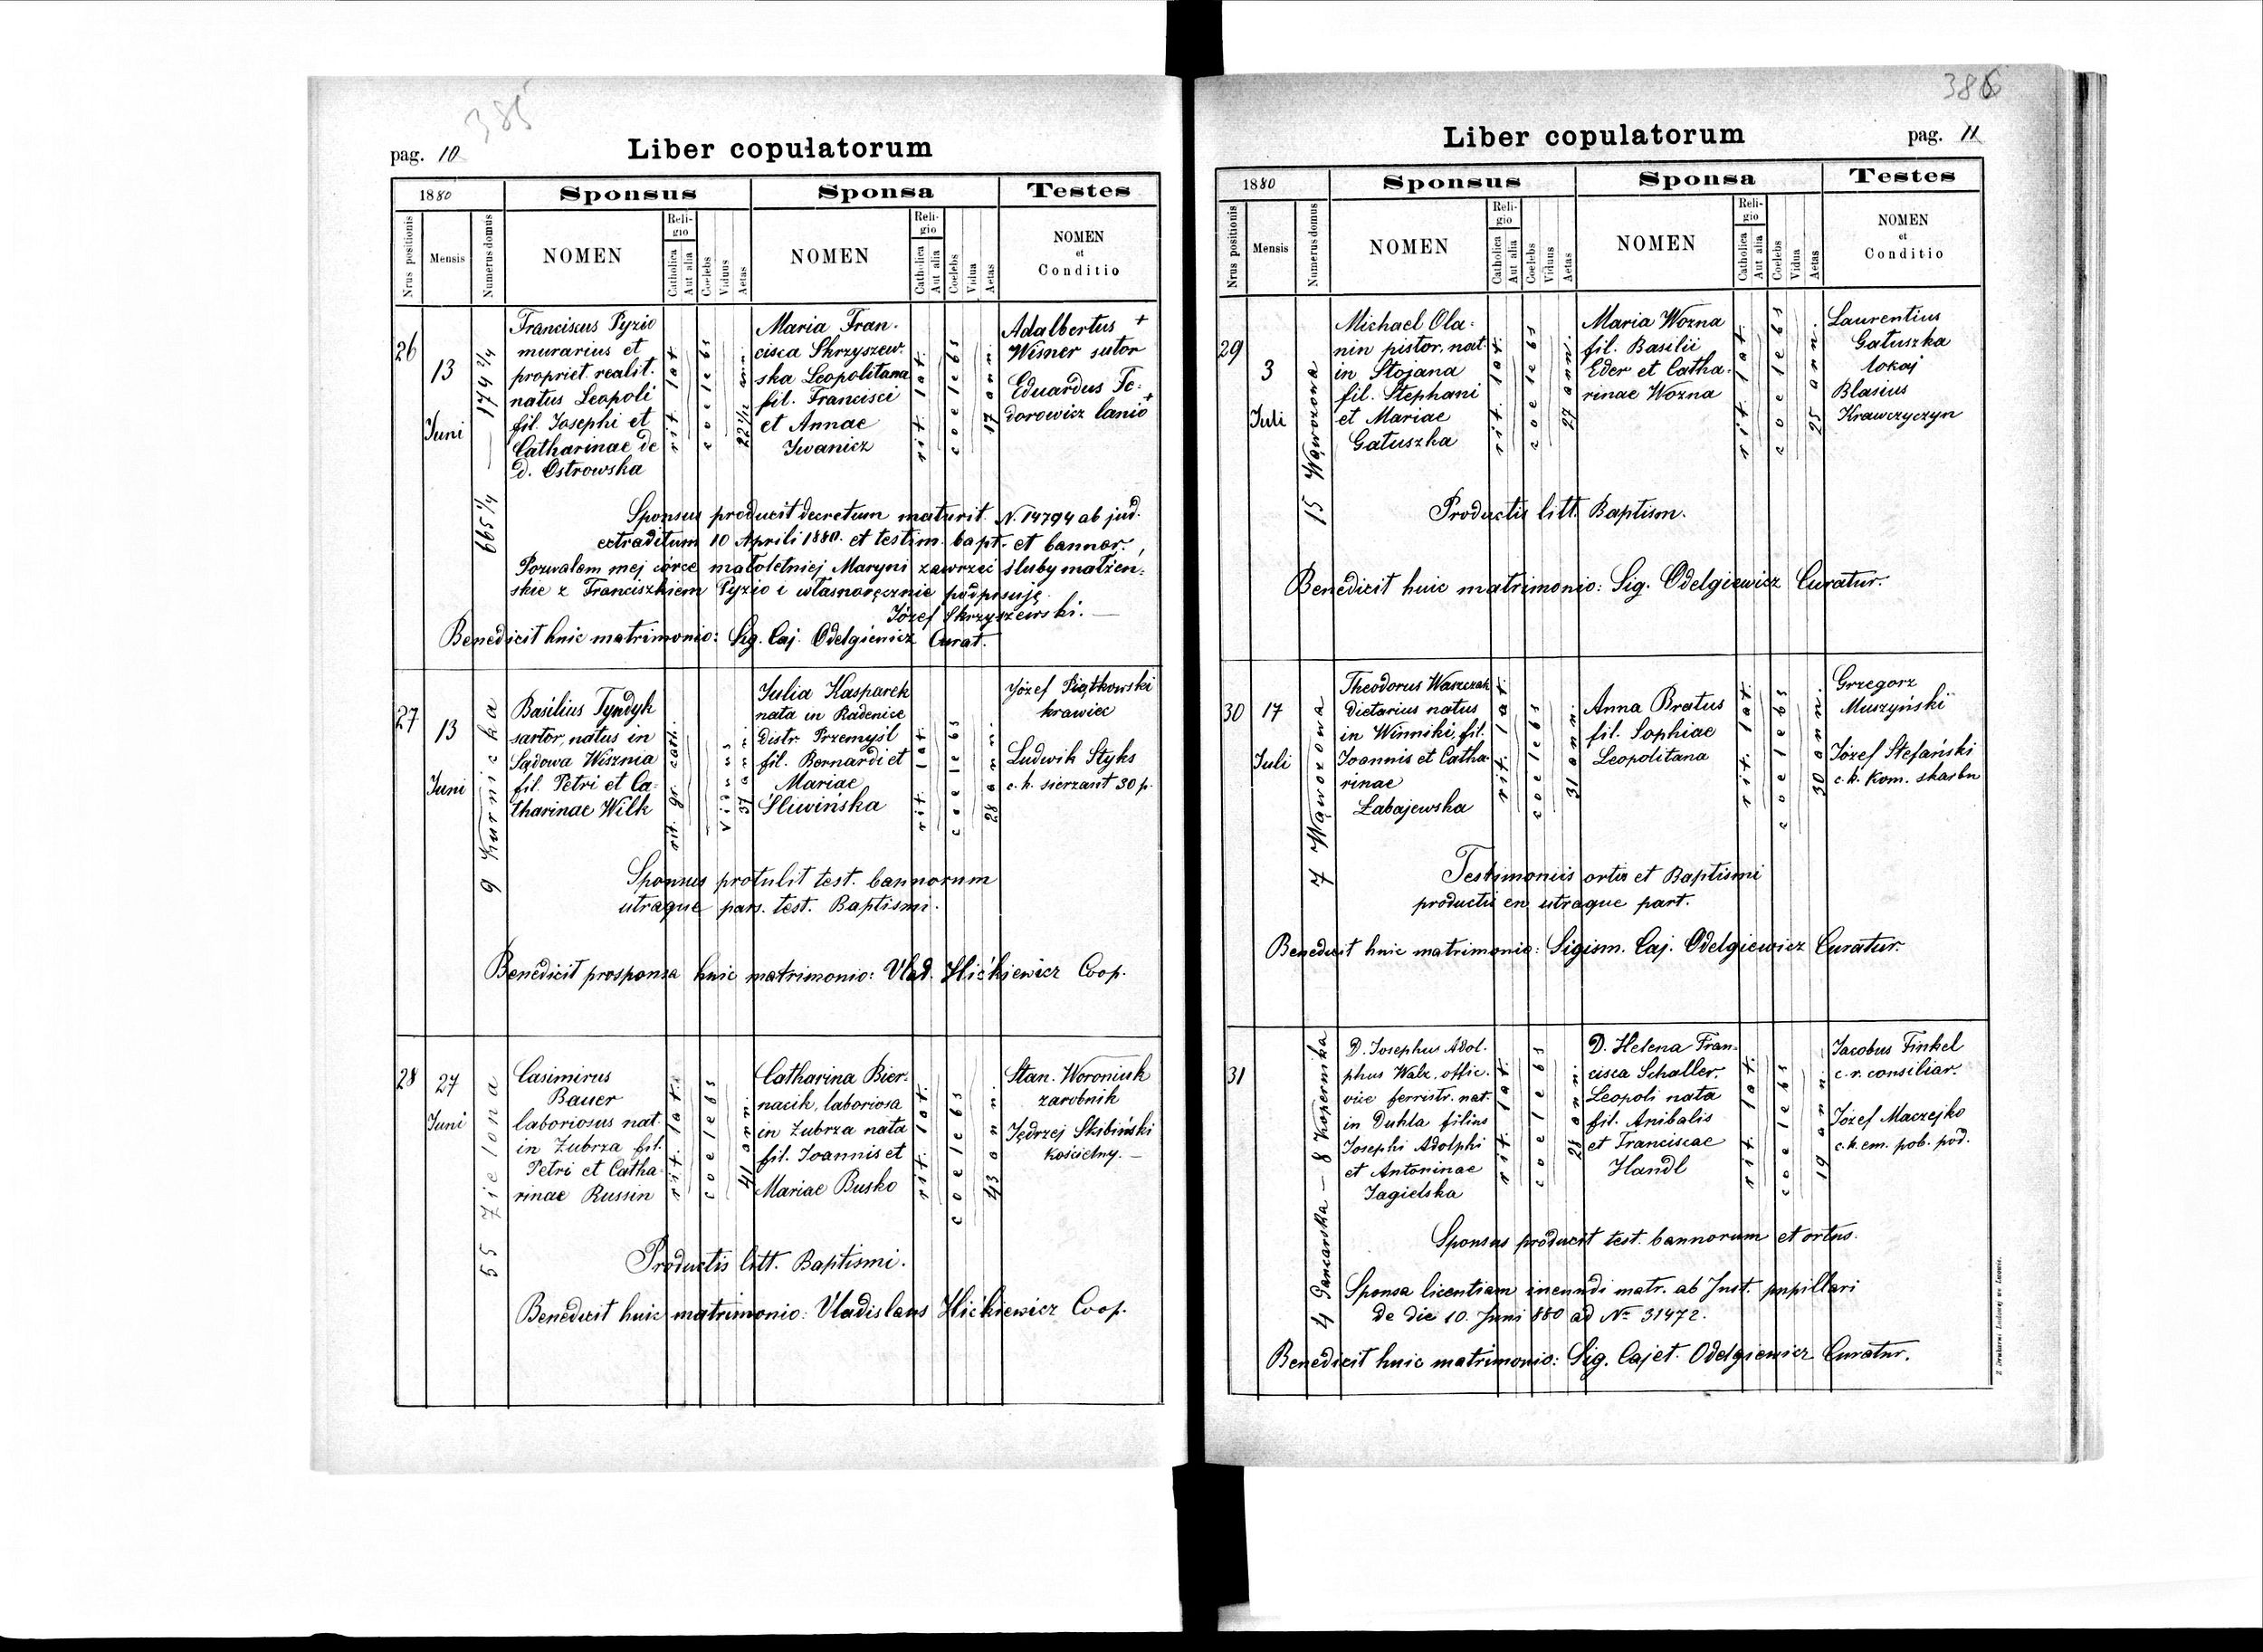 385
pag. 10
Liber copulatorum
1880
Sponsus
Sponsa
Testes
Nrus positionis
Mensis
Numerus domus
NOMEN
Religio
Catholica
Aut alia
Coelebs
Viduus
Aetas
NOMEN
Religio
Catholica
Aut alia
Coelebs
Vidua
Aetas
NOMEN
et
Conditio
26
13
Juni
665 1/4 — 174 2/4
Franciscus Pyzio
murarius et
propriet. realit.
natus Leopoli
fil. Josephi et
Catharinae de
d. Ostrowska
rit. lat.
coelebs
22 1/12 ann.
Maria Fran-
cisca Skrzyszew-
ska Leopolitana
fil. Francisci
et Annae
Iwanicz
rit. lat.
coelebs
17 ann.
Adalbertus +
Wisner sutor
Eduardus Te-
dorowicz lanio +
Sponsus producit decretum maturit. N. 14794 ab jud.
extraditum 10 Aprili 1880. et testim. bapt. et bannor.
Pozwalam mej córce małoletniej Maryni zawrzeć śluby małżeń-
skie z Franciszkiem Pyzio i własnoręcznie podpisuję
Józef Skrzyszewski. —
Benedicit huic matrimonio: Sig. Caj. Odelgiewicz Curat.
27
13
Juni
9 Kurnicka
Basilius Tyndyk
sartor, natus in
Sądowa Wisznia
fil. Petri et Ca-
tharinae Wilk
rit. gr. cath.
viduus
37 ann.
Julia Kasparek
nata in Radenice
distr. Przemyśl
fil. Bernardi et
Mariae
Śliwińska
rit. lat.
coelebs
28 ann.
Józef Piątkowski
krawiec
Ludwik Styks
c. k. sierżant 30 p.
Sponsus protulit test. bannorum
utraque pars. test. Baptismi.
Benedicit prosponsa huic matrimonio: Vlad. Hićkiewicz Coop.
28
27
Juni
55 Zielona
Casimirus
Bauer
laboriosus nat.
in Zubrza fil.
Petri et Catha-
rinae Russin
rit. lat.
coelebs
41 ann.
Catharina Bier-
nacik, laboriosa
in Zubrza nata
fil. Joannis et
Mariae Busko
rit. lat.
coelebs
43 ann.
Stan. Woroniuk
zarobnik
Jędrzej Skibiński
kościelny. —
Productis litt. Baptismi.
Benedicit huic matrimonio: Vladislaus Hićkiewicz Coop.
386
Liber copulatorum
pag. 11
1880
Sponsus
Sponsa
Testes
Nrus positionis
Mensis
Numerus domus
NOMEN
Religio
Catholica
Aut alia
Coelebs
Viduus
Aetas
NOMEN
Religio
Catholica
Aut alia
Coelebs
Vidua
Aetas
NOMEN
et
Conditio
29
3
Juli
15 Wąwozowa
Michael Ola-
nin pistor, nat.
in Stojana
fil. Stephani
et Mariae
Gatuszka
rit. lat.
coelebs
27 ann.
Maria Wozna
fil. Basilii
Eder et Catha-
rinae Wozna
rit. lat.
coelebs
25 ann.
Laurentius
Gatuszka
lokaj
Blasius
Krawczyczyn
Productis litt. Baptism.
Benedicit huic matrimonio: Sig. Odelgiewicz Curatur.
30
17
Juli
7 Wąwozowa
Theodorus Waszczak
dietarius natus
in Winniki, fil.
Joannis et Catha-
rinae
Łabajewska
rit. lat.
coelebs
31 ann.
Anna Bratus
fil. Sophiae
Leopolitana
rit. lat.
coelebs
30 ann.
Grzegorz
Muszyński
Józef Stefański
c. k. Kom. skarbu
Testimoniis ortus et Baptismi
productis en utraque part.
Benedicit huic matrimonio: Sigism. Caj. Odelgiewicz Curatur.
31
4 Gancarska — 8 Kopernika
D. Josephus Adol-
phus Walz, offic.
vice ferristr. nat.
in Dukla filius
Josephi Adolphi
et Antoninae
Jagielska
rit. lat.
coelebs
28 ann.
D. Helena Fran-
cisca Schaller.
Leopoli nata
fil. Anibalis
et Franciscae
Handl
rit. lat.
coelebs
19 ann.
Jacobus Finkel
c. r. consiliar.
Józef Maczejko
c. k. em. pob. pod.
Sponsus producit test. bannorum et ortus.
Sponsa licentiam ineundi matr. ab Just. pupillari
de die 10. Juni 880 ad No 31472.
Benedicit huic matrimonio: Sig. Cajet. Odelgiewicz Curatur.
Z Drukarni Ludowej we Lwowie.